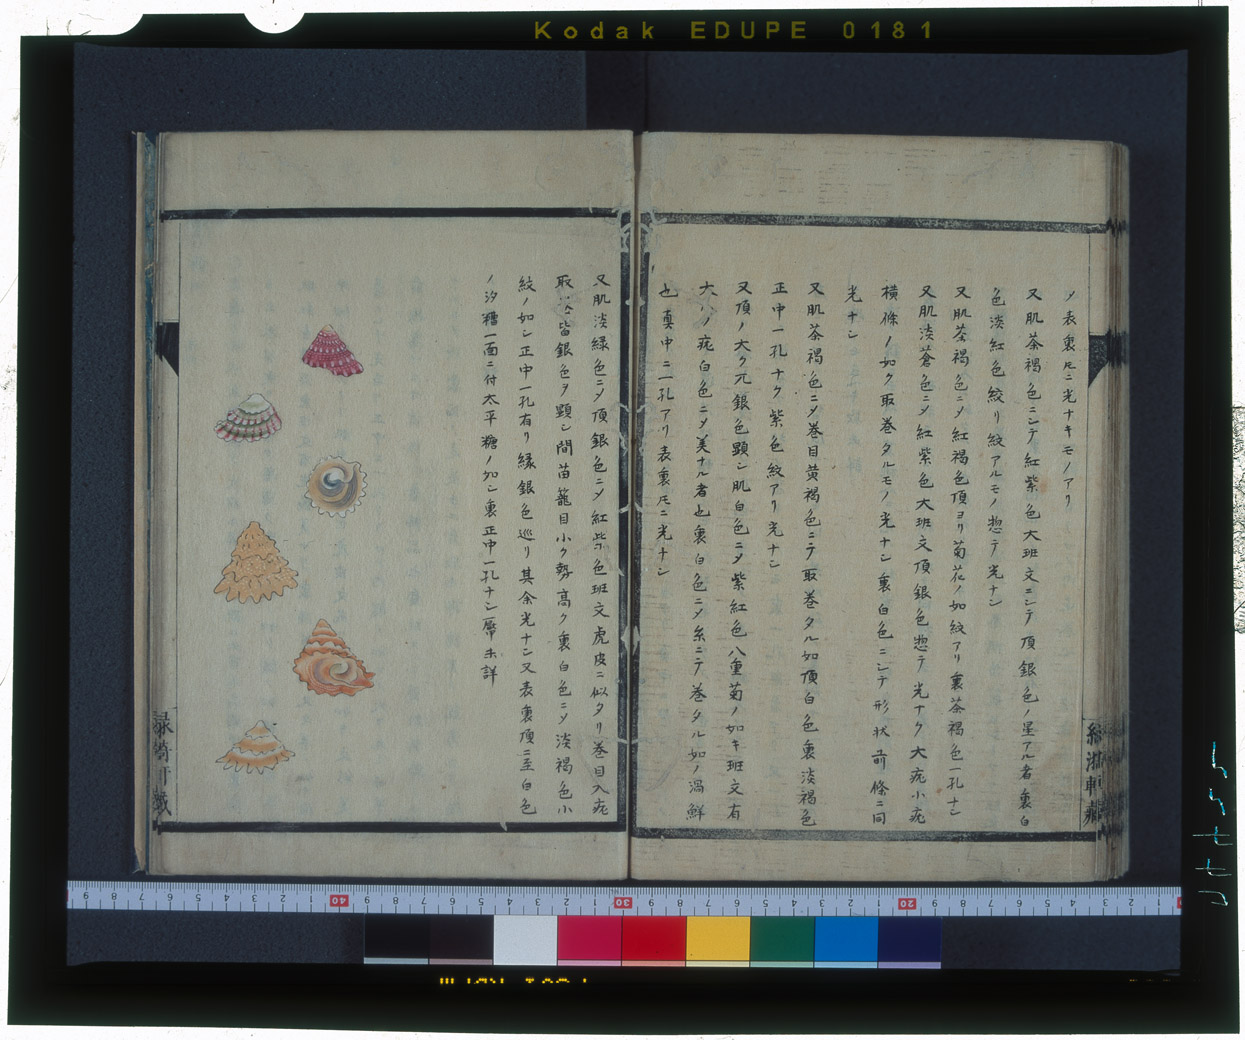 Kodak EDUPE 0181
メ表裏尼ニ光ナキモノアリ
又肌茶褐色ニシテ紅紫色大斑文ニシテ頂銀色ノ星アル者裏白
色淡紅色絞リ紋アルモノ惣テ光ナシ
又肌茶褐色ニメ紅褐色頂ヨリ菊花ノ如紋アリ裏茶褐色一孔ナシ
又肌淡蒼色ニメ紅紫色大班文頂銀色惣テ光ナク大疣小疣
横條ノ如ク取巻タルモノ光ナシ裏白色ニシテ形状前條ニ同
光ナシ
又肌茶褐色ニメ巻目黄褐色ニテ取巻タル如頂白色裏淡褐色
正中一孔ナク紫色紋アリ光ナシ
又頂ノ大ク元銀色顕シ肌白色ニメ紫紅色八重菊ノ如キ班文有
大ハノ疣白色ニメ美ナル者也裏白色ニメ糸ニテ巻タル如ノ渦鮮
也真中ニ一孔アリ表裏尼ニ光ナシ
又肌淡緑色ニメ頂銀色ニメ紅紫色班文虎皮ニ似タリ巻目入疣
取 皆銀色ヲ顕シ間苗籠目小ク勢高ク裏白色ニメ淡褐色小
紋ノ如シ正中一孔有リ縁銀色巡リ其余光ナシ又表裏頂ニ至白色
ノ汐糟一面ニ付太平糖ノ如シ裏正中一孔ナシ 未詳
40
30
20